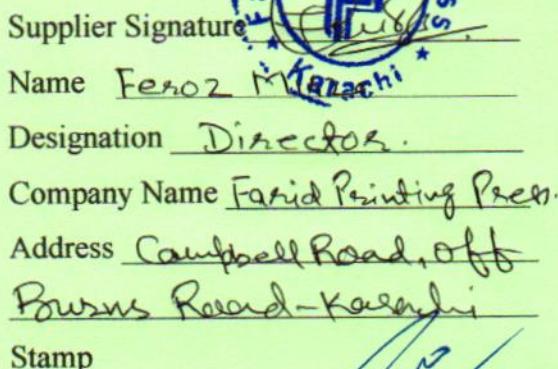 Supplier Signature
Karachi
Name Feroz
Designation Director.
Company Name Farid Printing Press.
Address Campbell Road, off
Burns Road-Karachi
Stamp